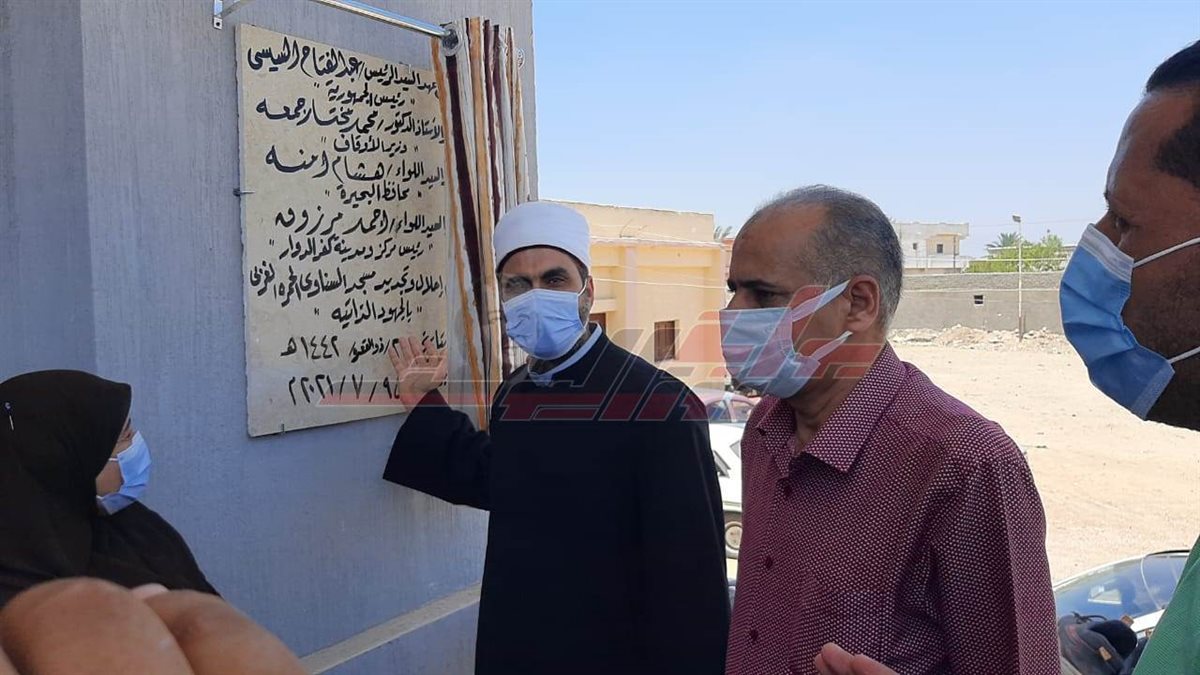 عهد السيد الرئيس/ عبد الفتاح السيسى
"رئيس الجمهورية"
والأستاذ الدكتور/ محمد مختار جمعه
"وزير الأوقاف"
السيد اللواء/ هشام امنه
"محافظ البحيرة"
السيد اللواء/ احمد مرزوق
"رئيس مركز ومدينة كفر الدوار"
إحلال وتجديد مسجد السناوى الحمره الغربى
"بالجهود الذاتيه"
ذو القعدة / ١٤٤٢ هـ
/ ٧ / ٢٠٢١م